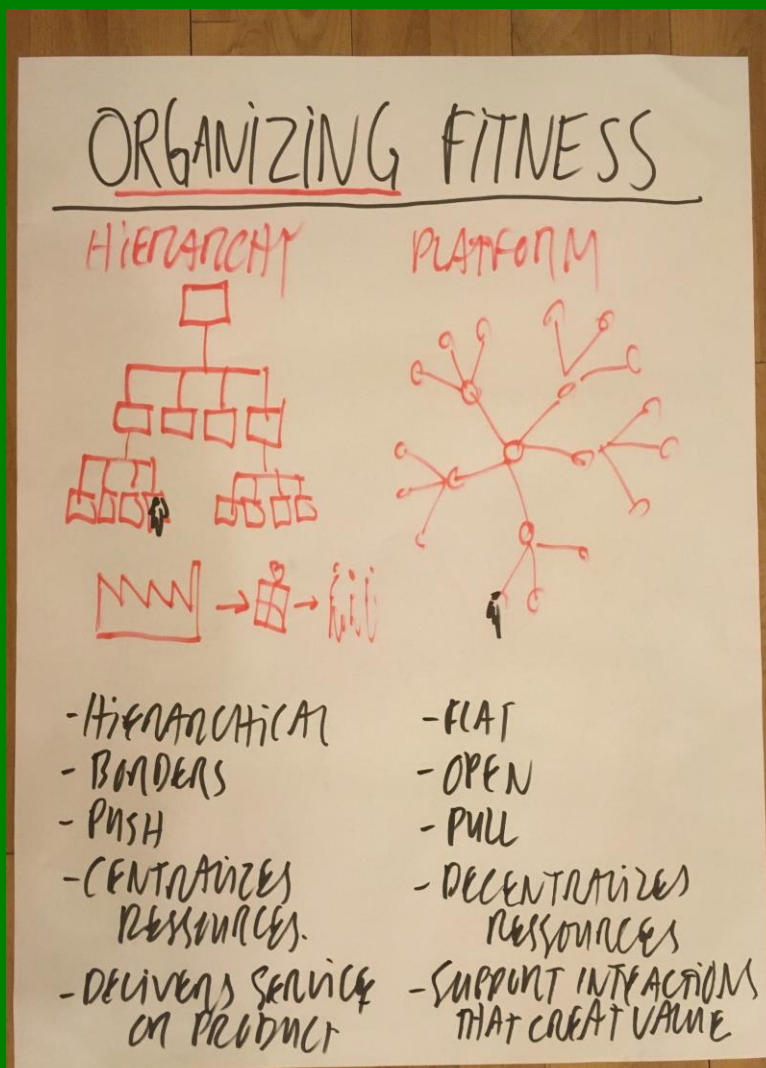 ORGANIZING FITNESS
HIERARCHY
PLATFORM
- HIERARCHICAL
- BORDERS
- PUSH
- CENTRALIZES
RESSOURCES.
- DELIVERS SERVICE
OR PRODUCT
- FLAT
- OPEN
- PULL
- DECENTRALIZES
RESSOURCES
- SUPPORT INTEACTIONS
THAT CREAT VALUE